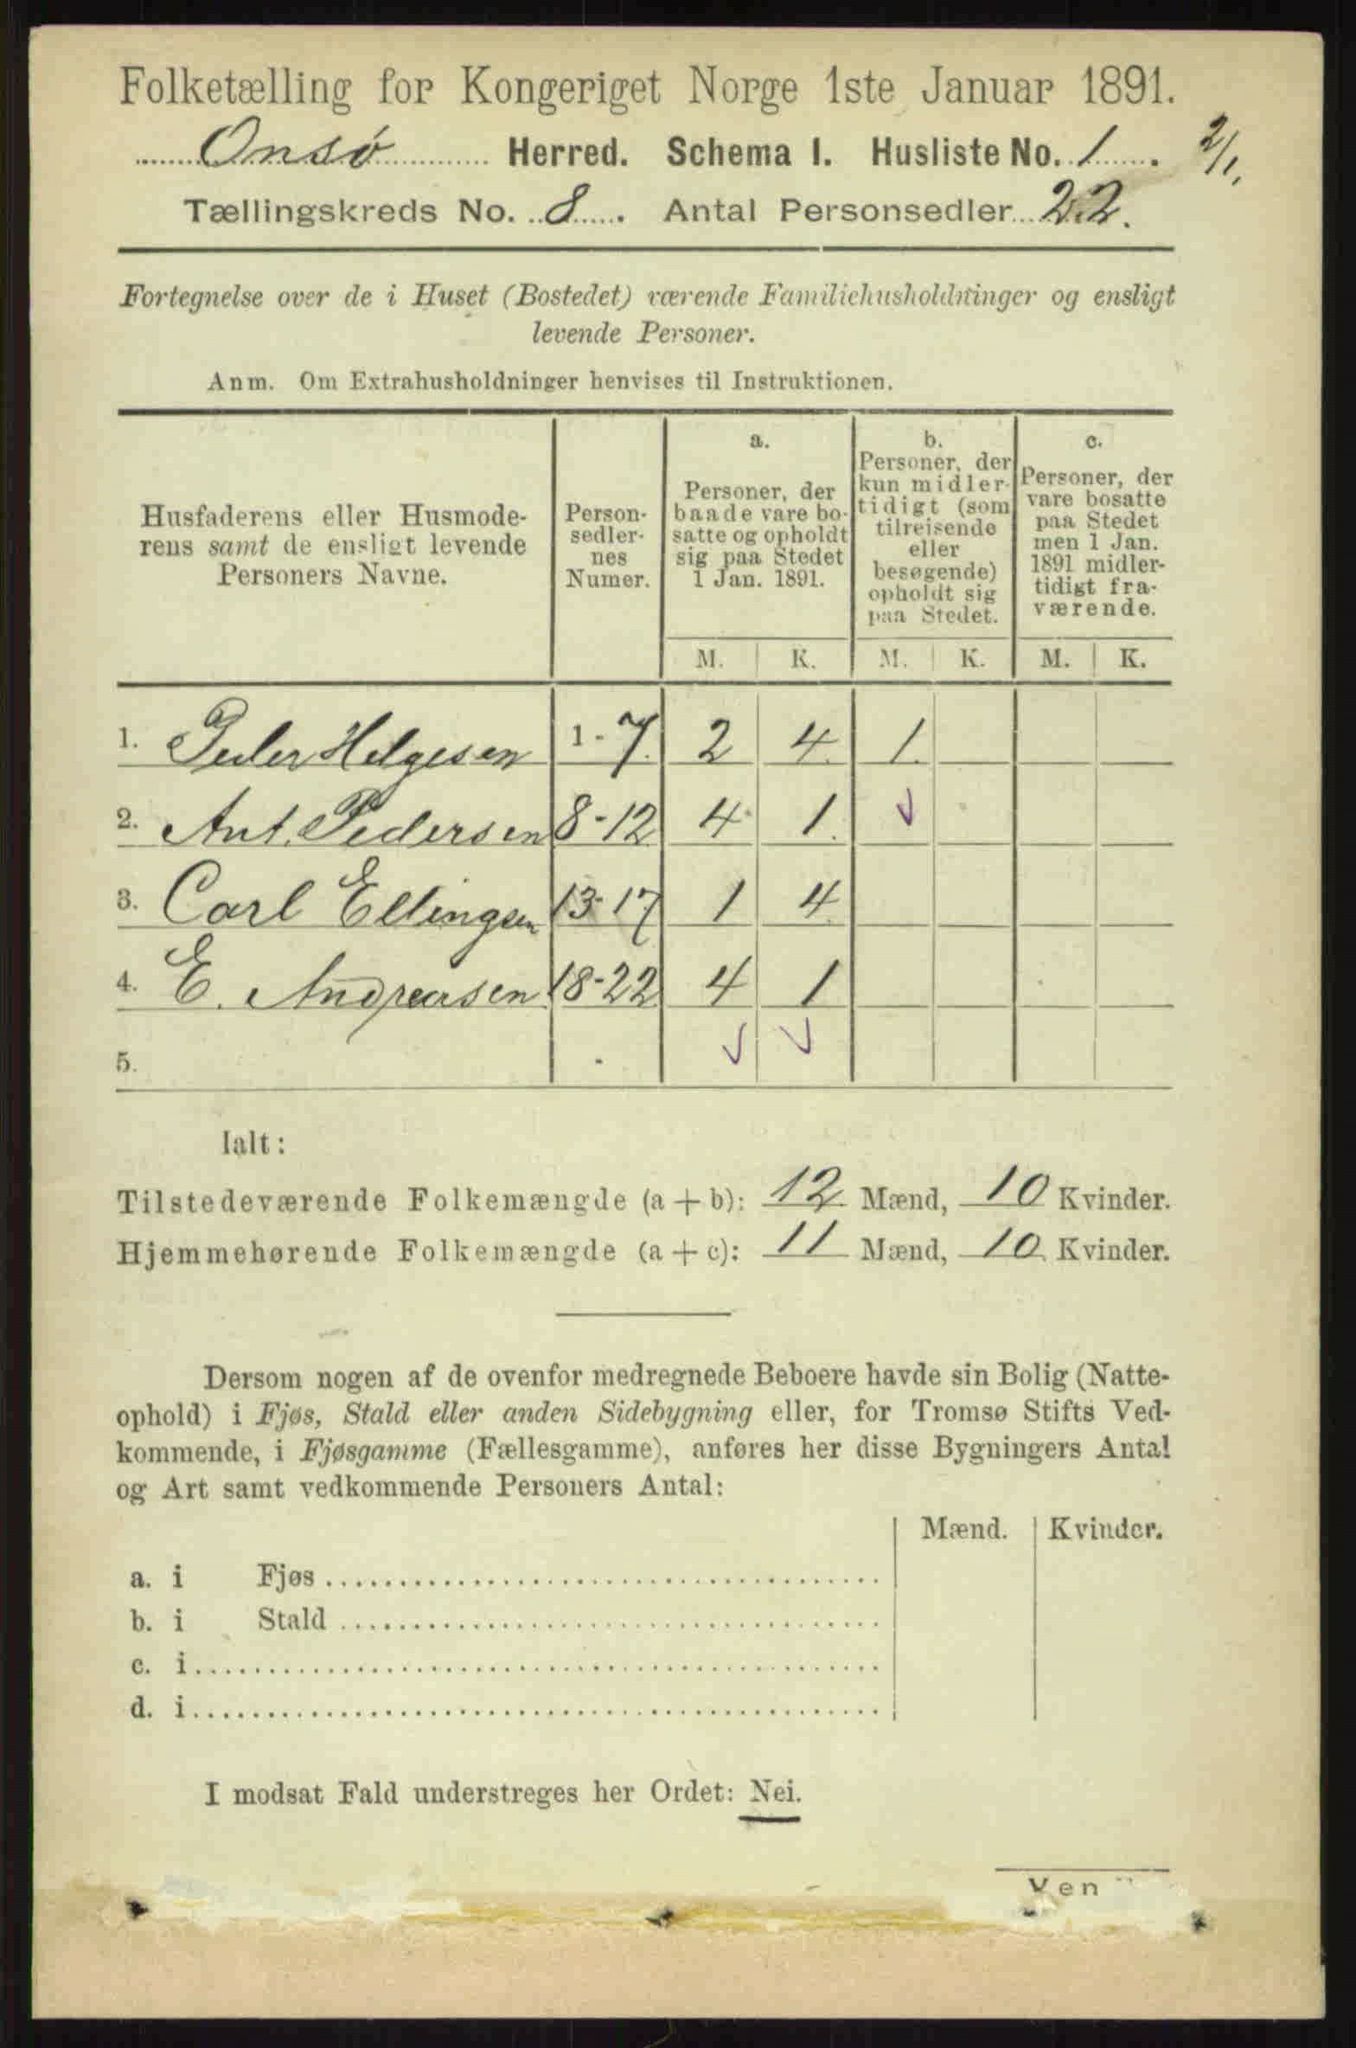 Folketælling for Kongeriget Norge 1ste Januar 1891.
Onsø Herred. Schema I. Husliste No. 1. 2/1.
Tællingskreds No. 8. Antal Personsedler 22.
Fortegnelse over de i Huset (Bostedet) værende Familiehusholdninger og ensligt
levende Personer.
Anm. Om Extrahusholdninger henvises til Instruktionen.
Husfaderens eller Husmode-
rens samt de ensligt levende
Personers Navne.
Person-
sedler-
nes
Numer.
a.
Personer, der
baade vare bo-
satte og opholdt
sig paa Stedet
1 Jan. 1891.
b.
Personer, der
kun midler-
tidigt (som
tilreisende
eller
besøgende)
opholdt sig
paa Stedet.
c.
Personer, der
vare bosatte
paa Stedet
men 1 Jan.
1891 midler-
tidigt fra-
værende.
M. K. M. K. M. K.
1. Peder Helgesen 1-7. 2 4. 1.
2. Ant. Pedersen 8-12 4 1.
3. Carl Ellingsen 13-17 1 4
4. E. Andreasen 18-22 4 1
5. -
Ialt:
Tilstedeværende Folkemængde (a + b): 12 Mænd, 10 Kvinder.
Hjemmehørende Folkemængde (a + c): 11 Mænd, 10 Kvinder.
Dersom nogen af de ovenfor medregnede Beboere havde sin Bolig (Natte-
ophold) i Fjøs, Stald eller anden Sidebygning eller, for Tromsø Stifts Ved-
kommende, i Fjøsgamme (Fællesgamme), anføres her disse Bygningers Antal
og Art samt vedkommende Personers Antal:
Mænd. Kvinder.
a. i Fjøs
b. i Stald
c. i
d. i
I modsat Fald understreges her Ordet: Nei.
Ven